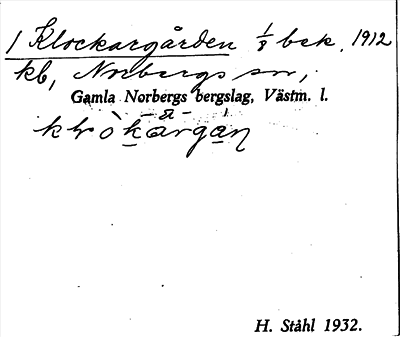 1 Klockargården 1/8 bsk. 1912
kb, Norbergs sn,
Gamla Norbergs bergslag, Västm. l.
H. Ståhl 1932.